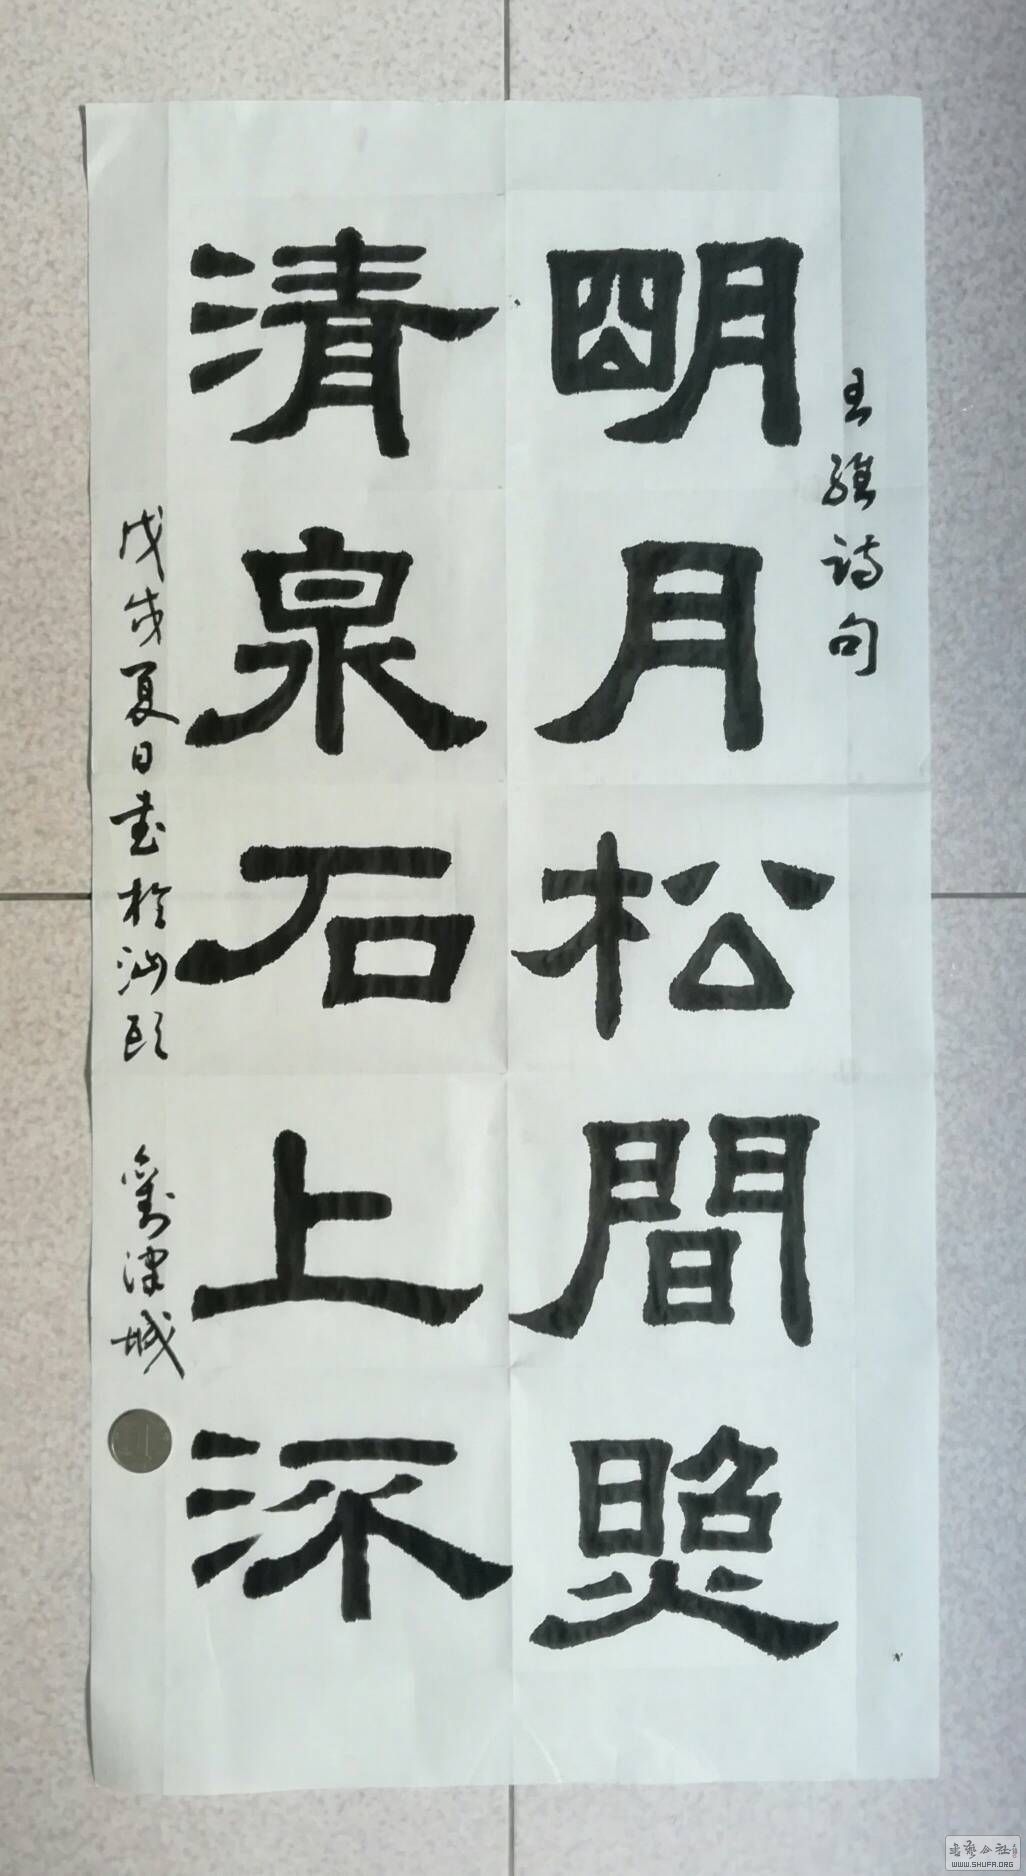 王維詩句
朙月松間照
清泉石上㳅
戊戌夏日書於汕頭
劉澤城
書藝公社
WWW.SHUFA.ORG